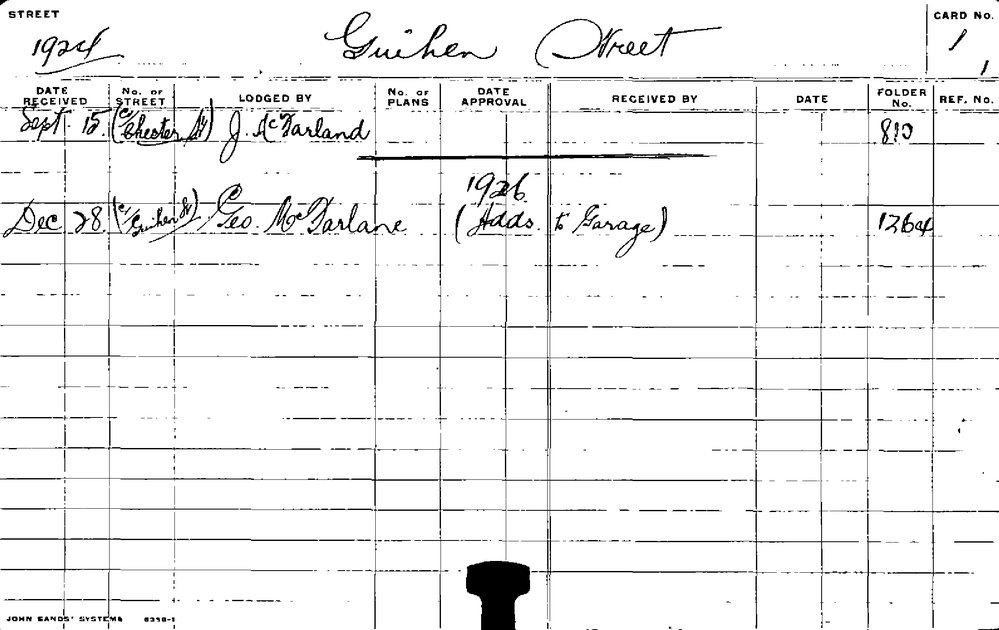 STREET
1924
Guihen Street
CARD No.
1
1
DATE RECEIVED
No. OF STREET
LODGED BY
No. OF PLANS
DATE APPROVAL
RECEIVED BY
DATE
FOLDER No.
REF. No.
Sept. 15. (c/ Chester St) J. McFarland 810
1926
Dec 28. (c/ Guihen St) Geo. McFarlane (Adds. to Garage) 1264
JOHN SANDS' SYSTEMS